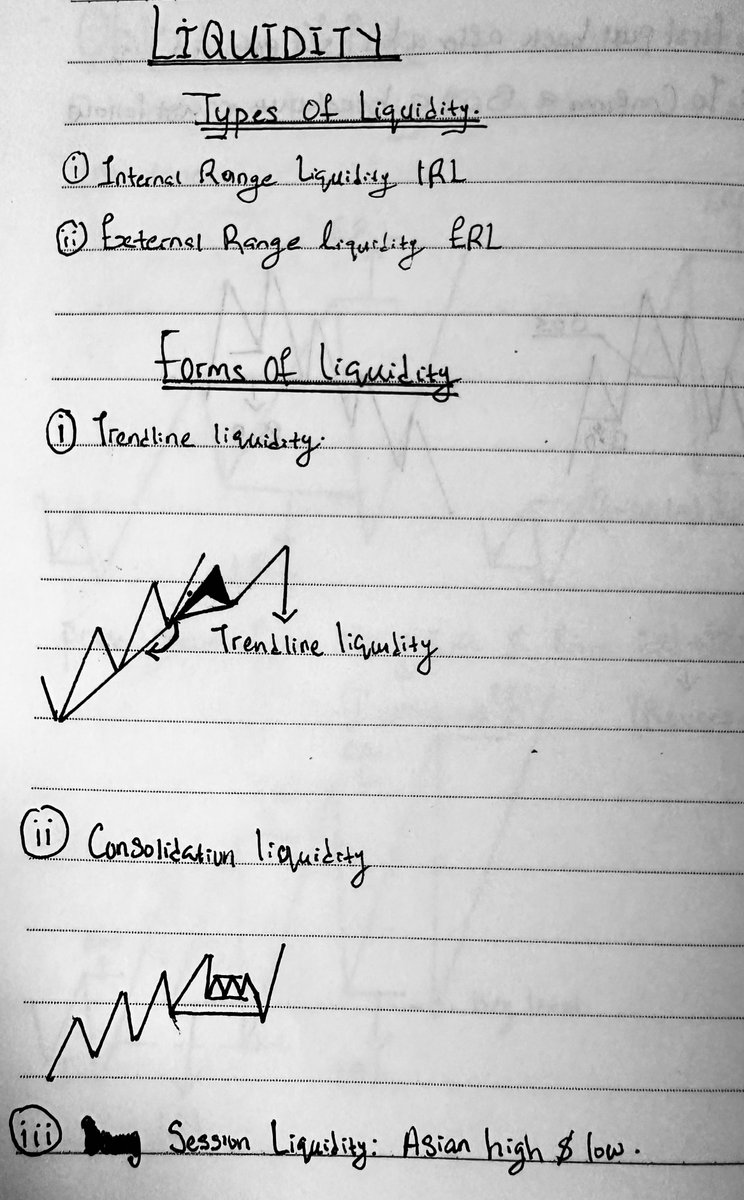 LIQUIDITY
Types Of Liquidity.
(i) Internal Range Liquidity IRL
(ii) External Range liquidity ERL
Forms of liquidity
(i) Trendline liquidity.
Trendline liquidity
(ii) Consolidation liquidity
(iii) Session Liquidity: Asian high $ low.